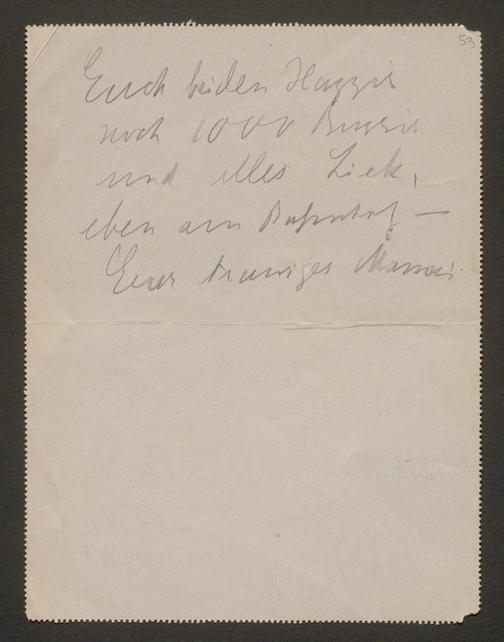 53
Euch beiden Haggis
noch 1000 Bussis
und alles Lieb,
eben am Bahnhof —
Euer trauriges Mannsi